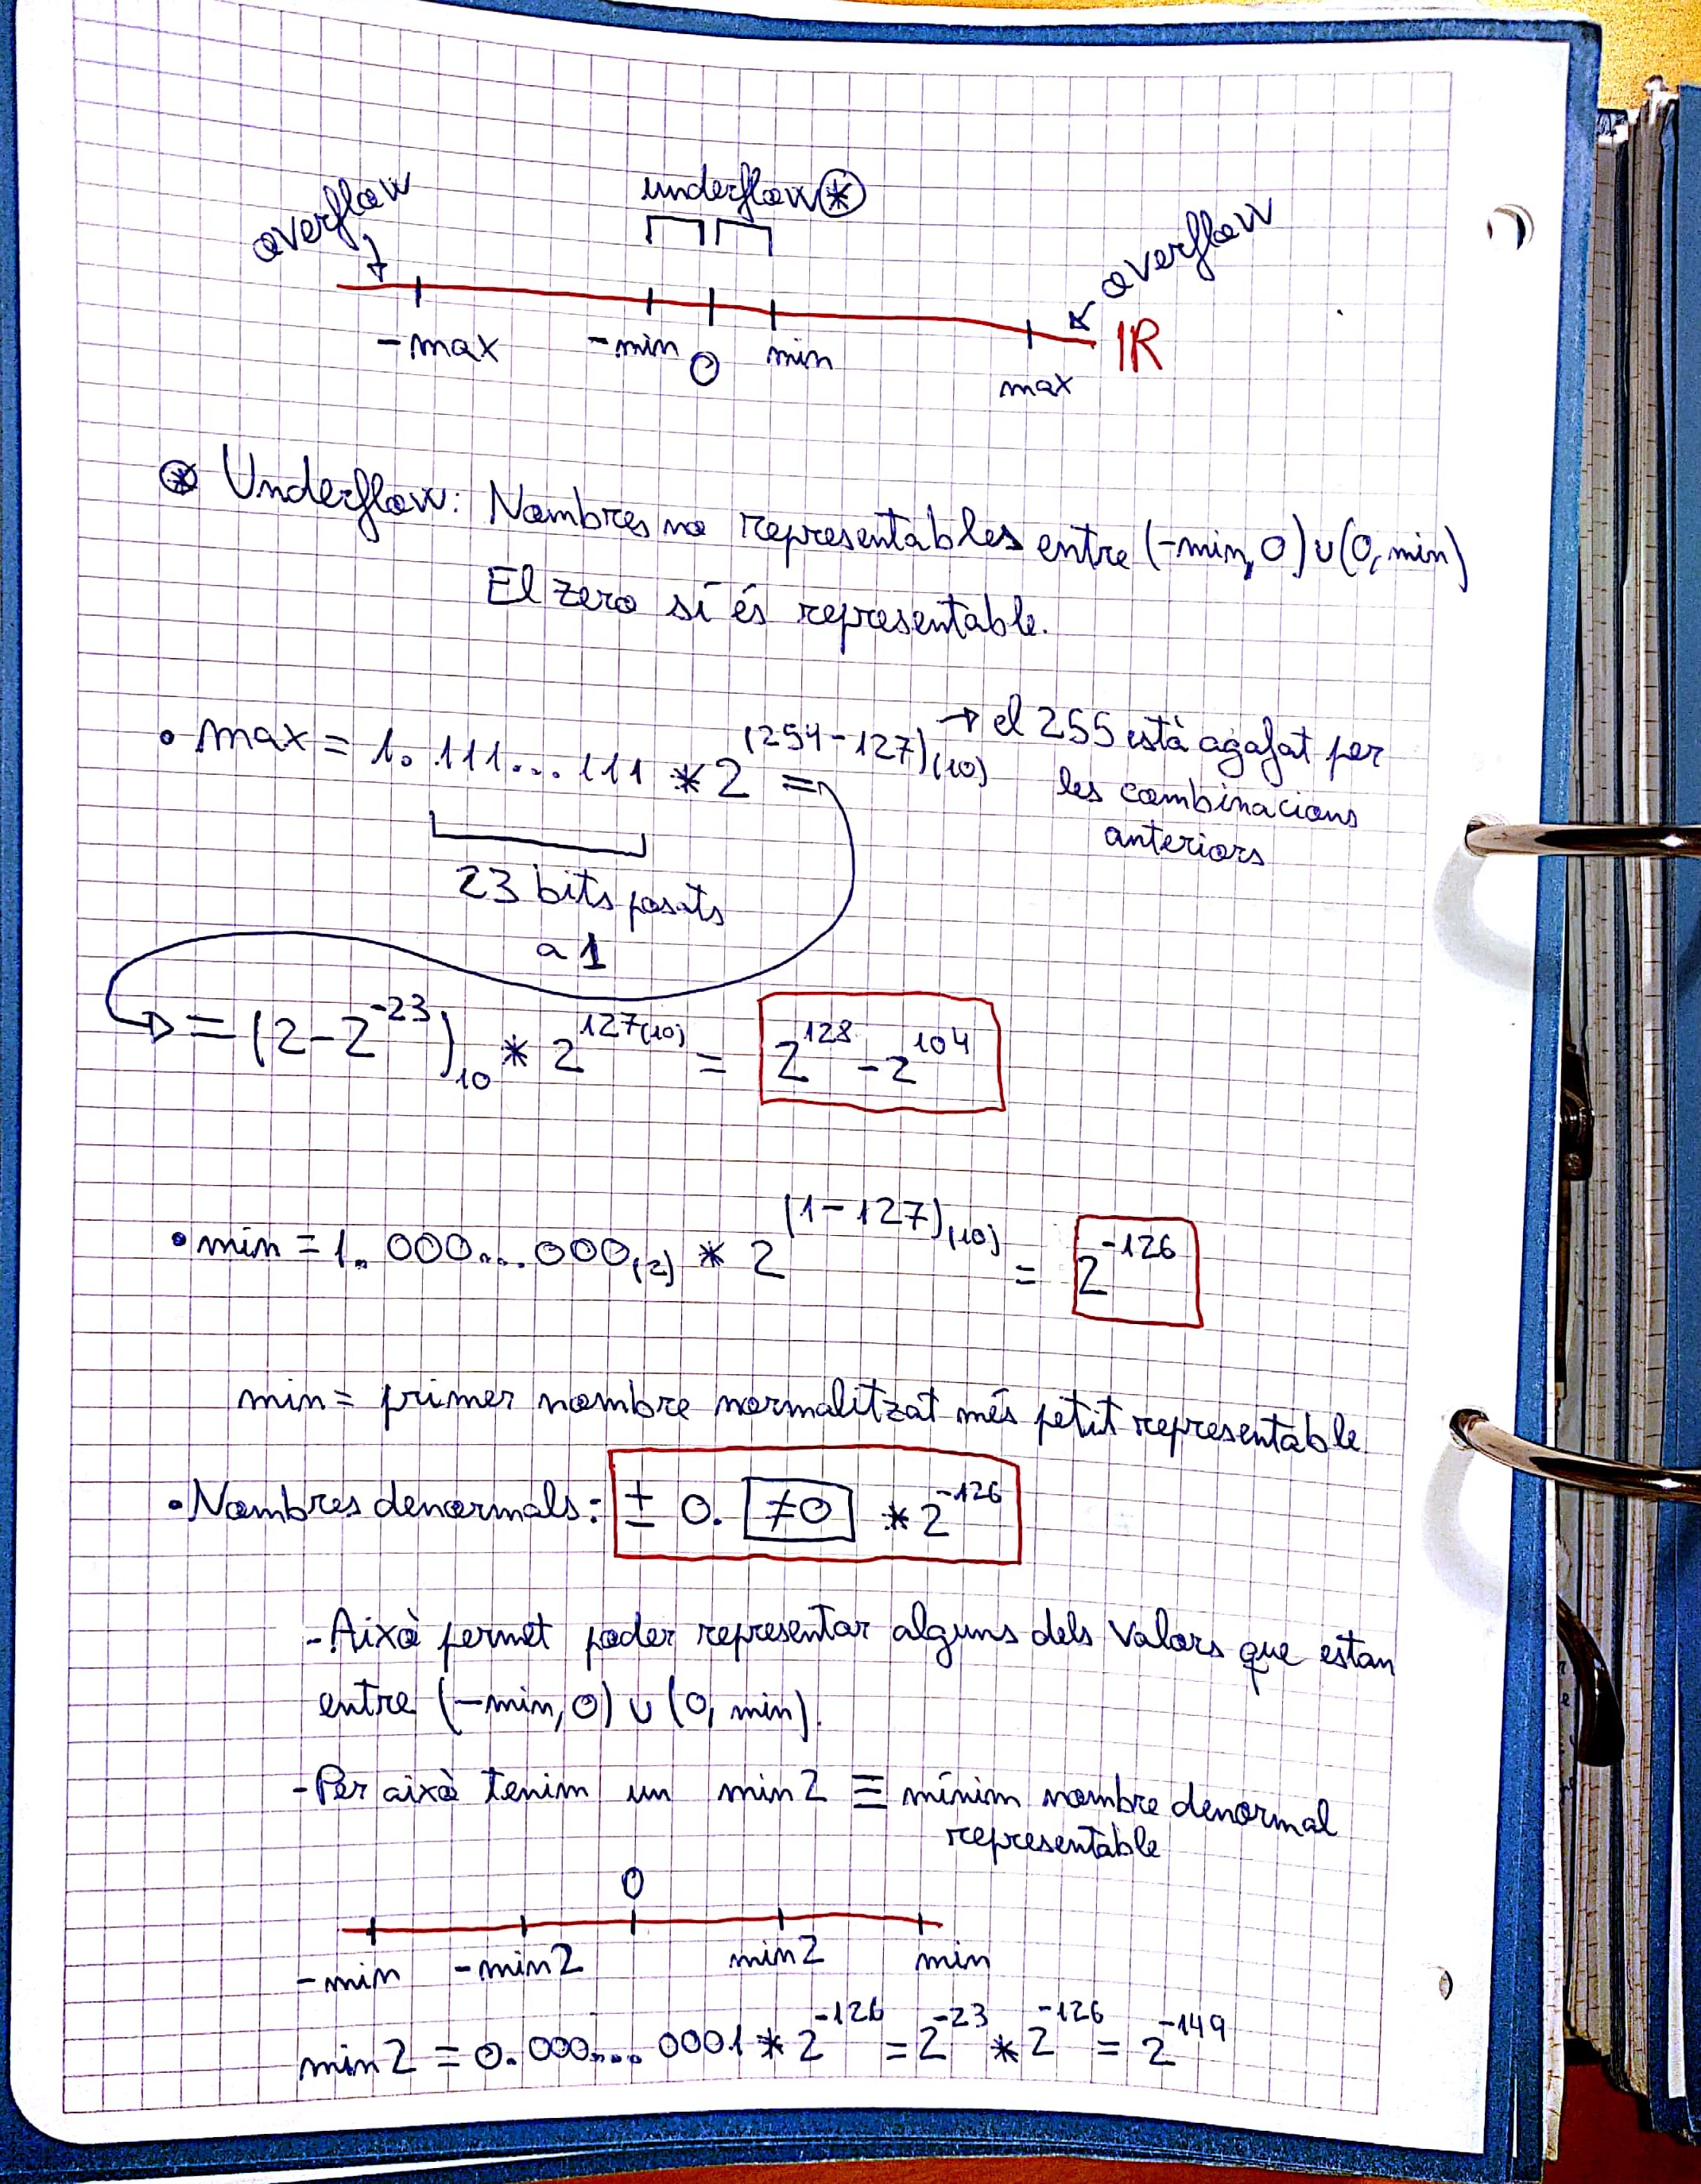 overflow underflow ⊛ overflow
-max -min 0 min max ℝ
⊛ Underflow: Nombres no representables entre (-min, 0) ∪ (0, min)
El zero sí és representable.
• max = 1.111...111 * 2^(254-127)(10) = → el 255 està agafat per
les combinacions
anteriors
23 bits posats
a 1
= (2-2^-23)10 * 2^127(10) = 2^128 - 2^104
• min = 1.000...000(2) * 2^(1-127)(10) = 2^-126
min = primer nombre normalitzat més petit representable
• Nombres denormals: ± 0. ≠0 * 2^-126
- Això permet poder representar alguns dels valors que estan
entre (-min, 0) ∪ (0, min).
- Per això tenim un min2 ≡ mínim nombre denormal
representable
0
-min -min2 min2 min
min2 = 0.000...0001 * 2^-126 = 2^-23 * 2^-126 = 2^-149